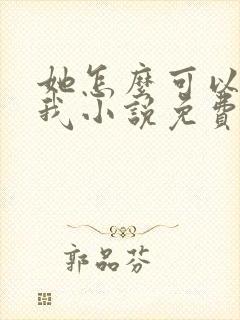 她怎麼可以
我小說免費
郭品芬